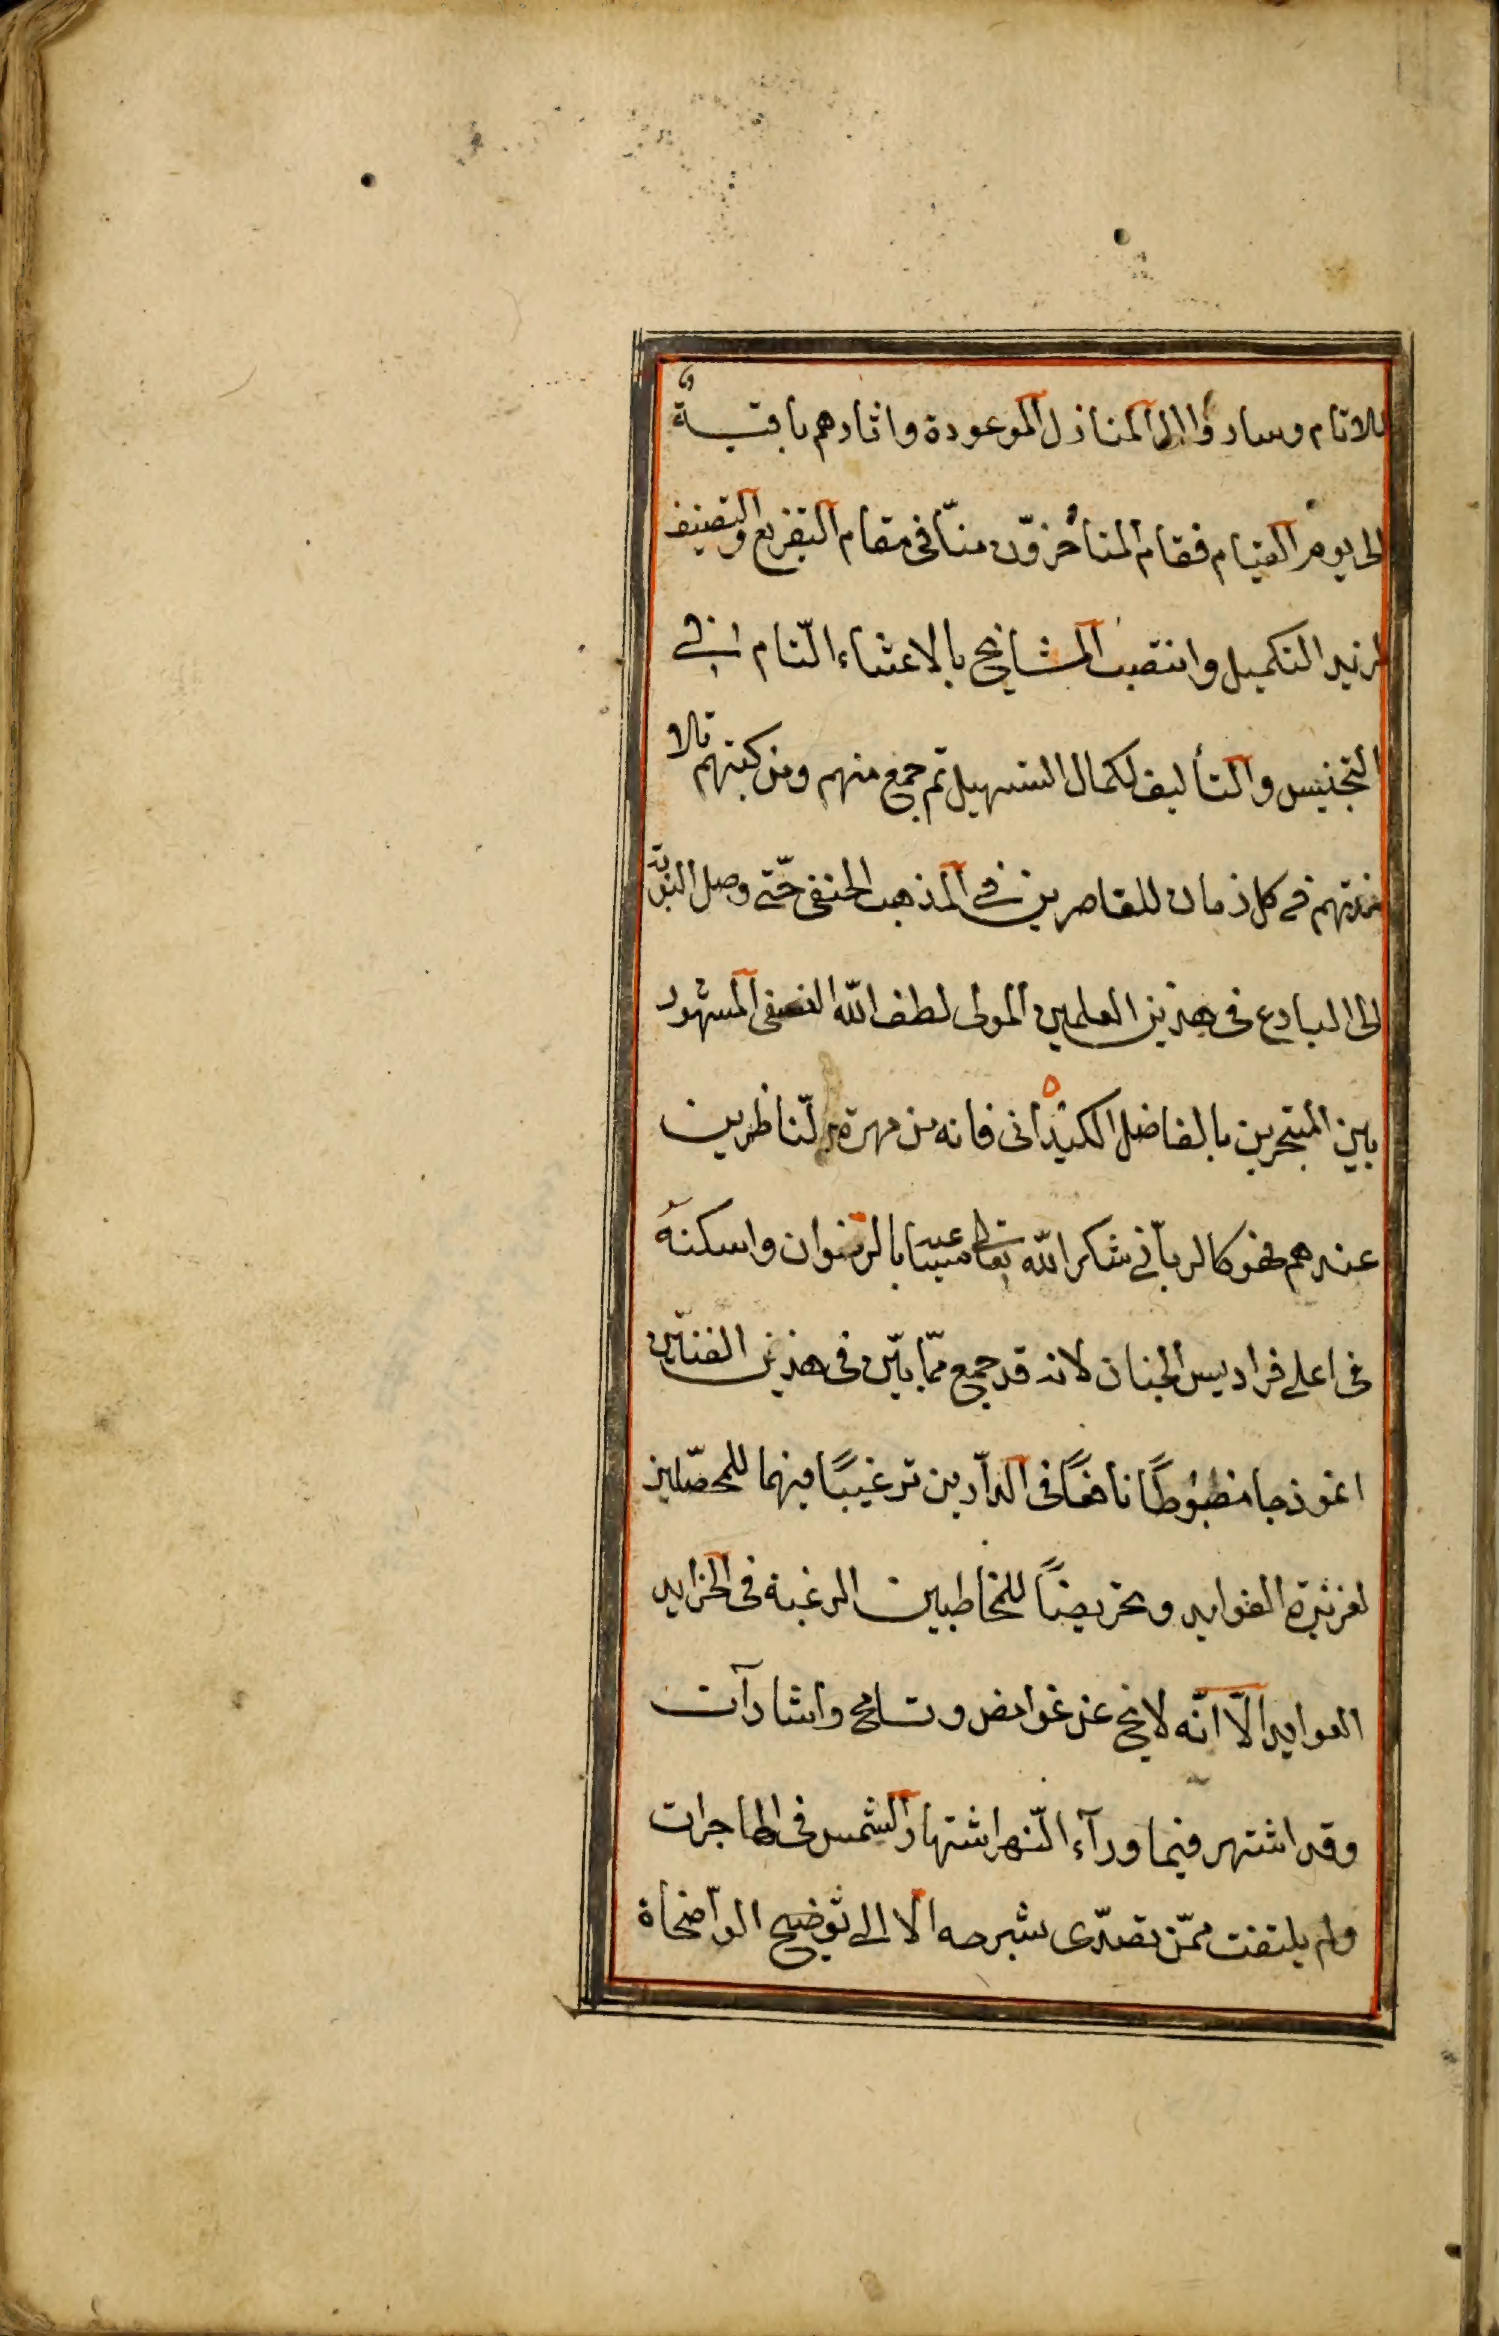 للانام وساروا الى المنازل الموعودة واثارهم باقية
الى يوم القيام فقام المتأخرون منّا فى مقام التفريع والتصنيف
لمزيد التكميل وانتصب المشايخ بالاعتناء التّام فى
التجنيس والتأليف لكمال التسهيل ثم جمع منهم ومن كتبهم تلا
مذتهم فى كل زمان للقاصرين فى المذهب الحنفى حتّى وصل النوبة
الى البارع فى هذين العلمين المولى لطف الله النسفى المشهور
بين المتبحرين بالفاضل الكيدانى فانه من مهرة الناظرين
عندهم فهو كالربانى شكر الله تعالى سعيه بالرضوان واسكنه
فى اعلى فراديس الجنان لانه قد جمع ممّا بيّن فى هذين الفنّين
انموذجا مضبوطًا نافعًا فى الدارين ترغيبًا فيهما للمحصّلين
لغزيرة الفوايد وتحريضًا للمخاطبين الرغبة فى الخرايد
العوايد الّا انّه لا يخ عن غوامض وتسامح واشارات
وقد اشتهر فيما ورآء النّهر اشتهار الشمس فى الهاجرات
ولم يلتفت ممّن تصدّى بشرحه الا الى توضيح الواضحاة